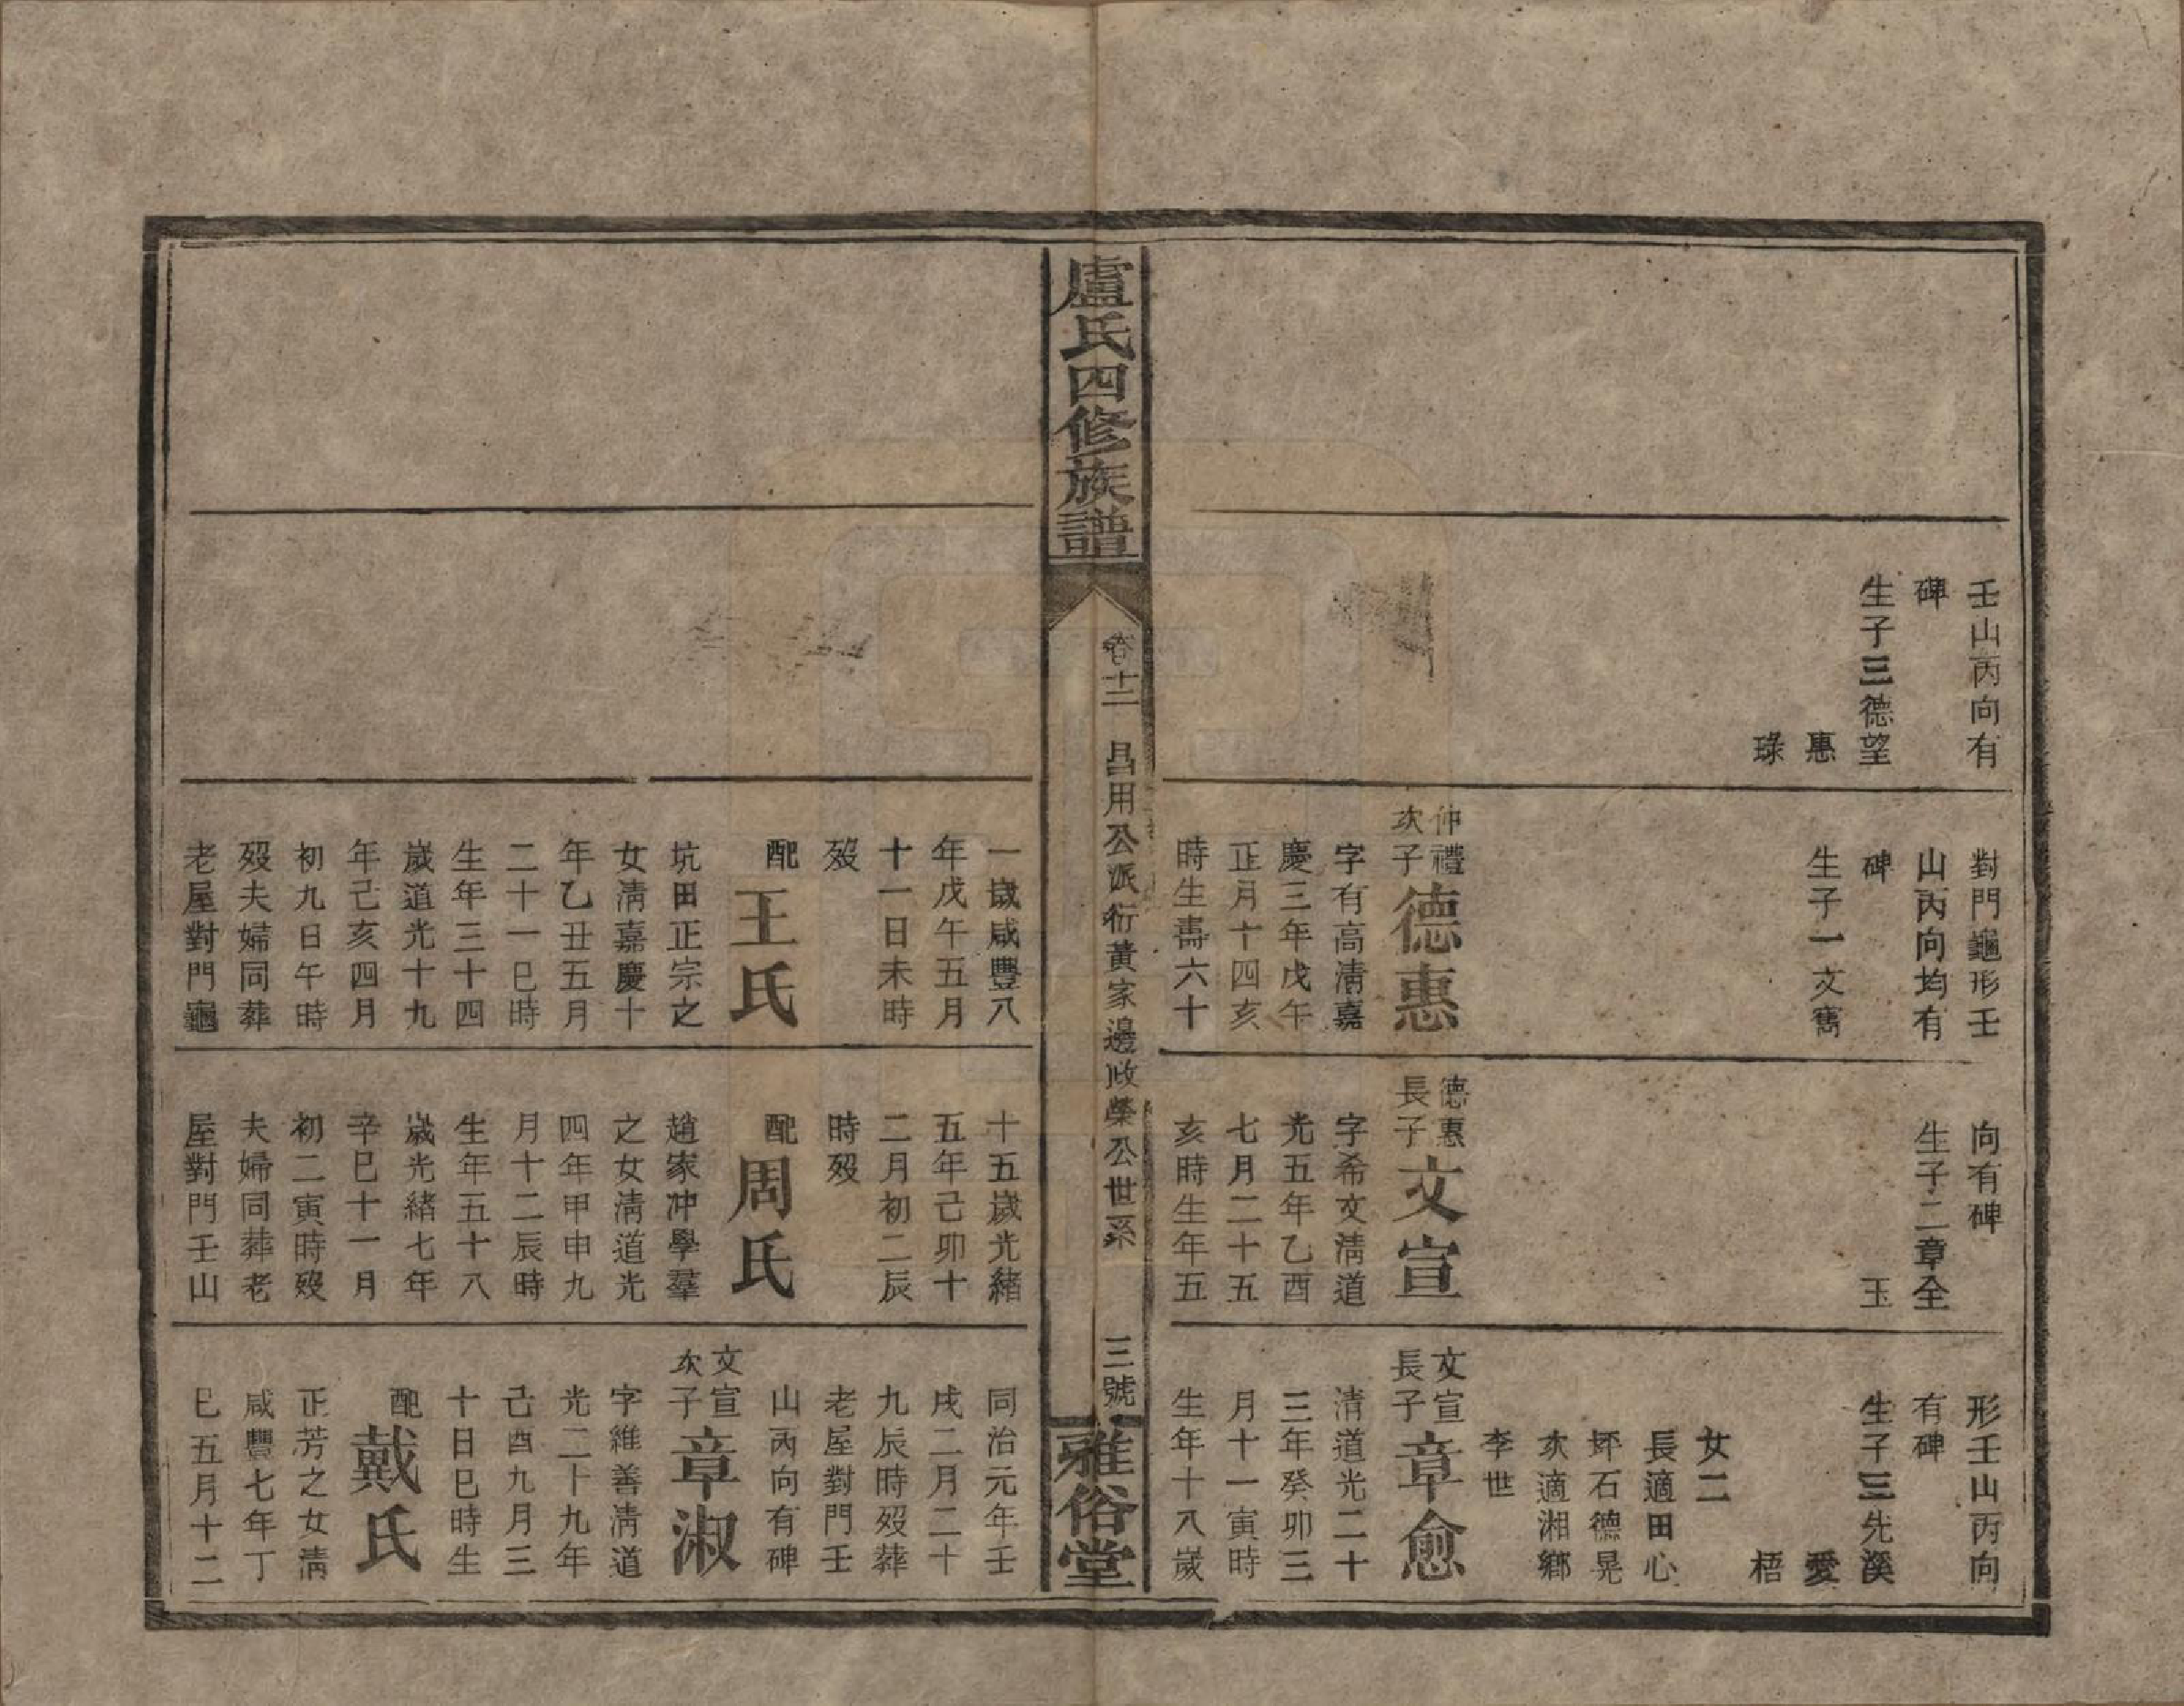 壬山丙向有
碑
生子三德望
惠
琭
對門龜形壬
山丙向均有
碑
生子一文寯
仲禮
次子
德惠
字有高清嘉
慶三年戊午
正月十四亥
時生壽六十
向有碑
生子二章全
玉
德惠
長子
文宣
字希文清道
光五年乙酉
七月二十五
亥時生年五
形壬山丙向
有碑
生子三先溪
愛
梧
女二
長適田心
坪石德晃
次適湘鄉
李世
文宣
長子
章愈
清道光二十
三年癸卯三
月十一寅時
生年十八歲
盧氏四修族譜
卷十二
昌用公派衍黃家邊政榮公世系
三號
雅俗堂
一歲咸豐八
年戊午五月
十一日未時
歿
配
王氏
坑田正宗之
女清嘉慶十
年乙丑五月
二十一巳時
生年三十四
歲道光十九
年己亥四月
初九日午時
歿夫婦同葬
老屋對門龜
十五歲光緒
五年己卯十
二月初二辰
時歿
配
周氏
趙家冲學羣
之女清道光
四年甲申九
月十二辰時
生年五十八
歲光緒七年
辛巳十一月
初二寅時歿
夫婦同葬老
屋對門壬山
同治元年壬
戌二月二十
九辰時歿葬
老屋對門壬
山丙向有碑
文宣
次子
章淑
字維善清道
光二十九年
己酉九月三
十日巳時生
配
戴氏
正芳之女清
咸豐七年丁
巳五月十二